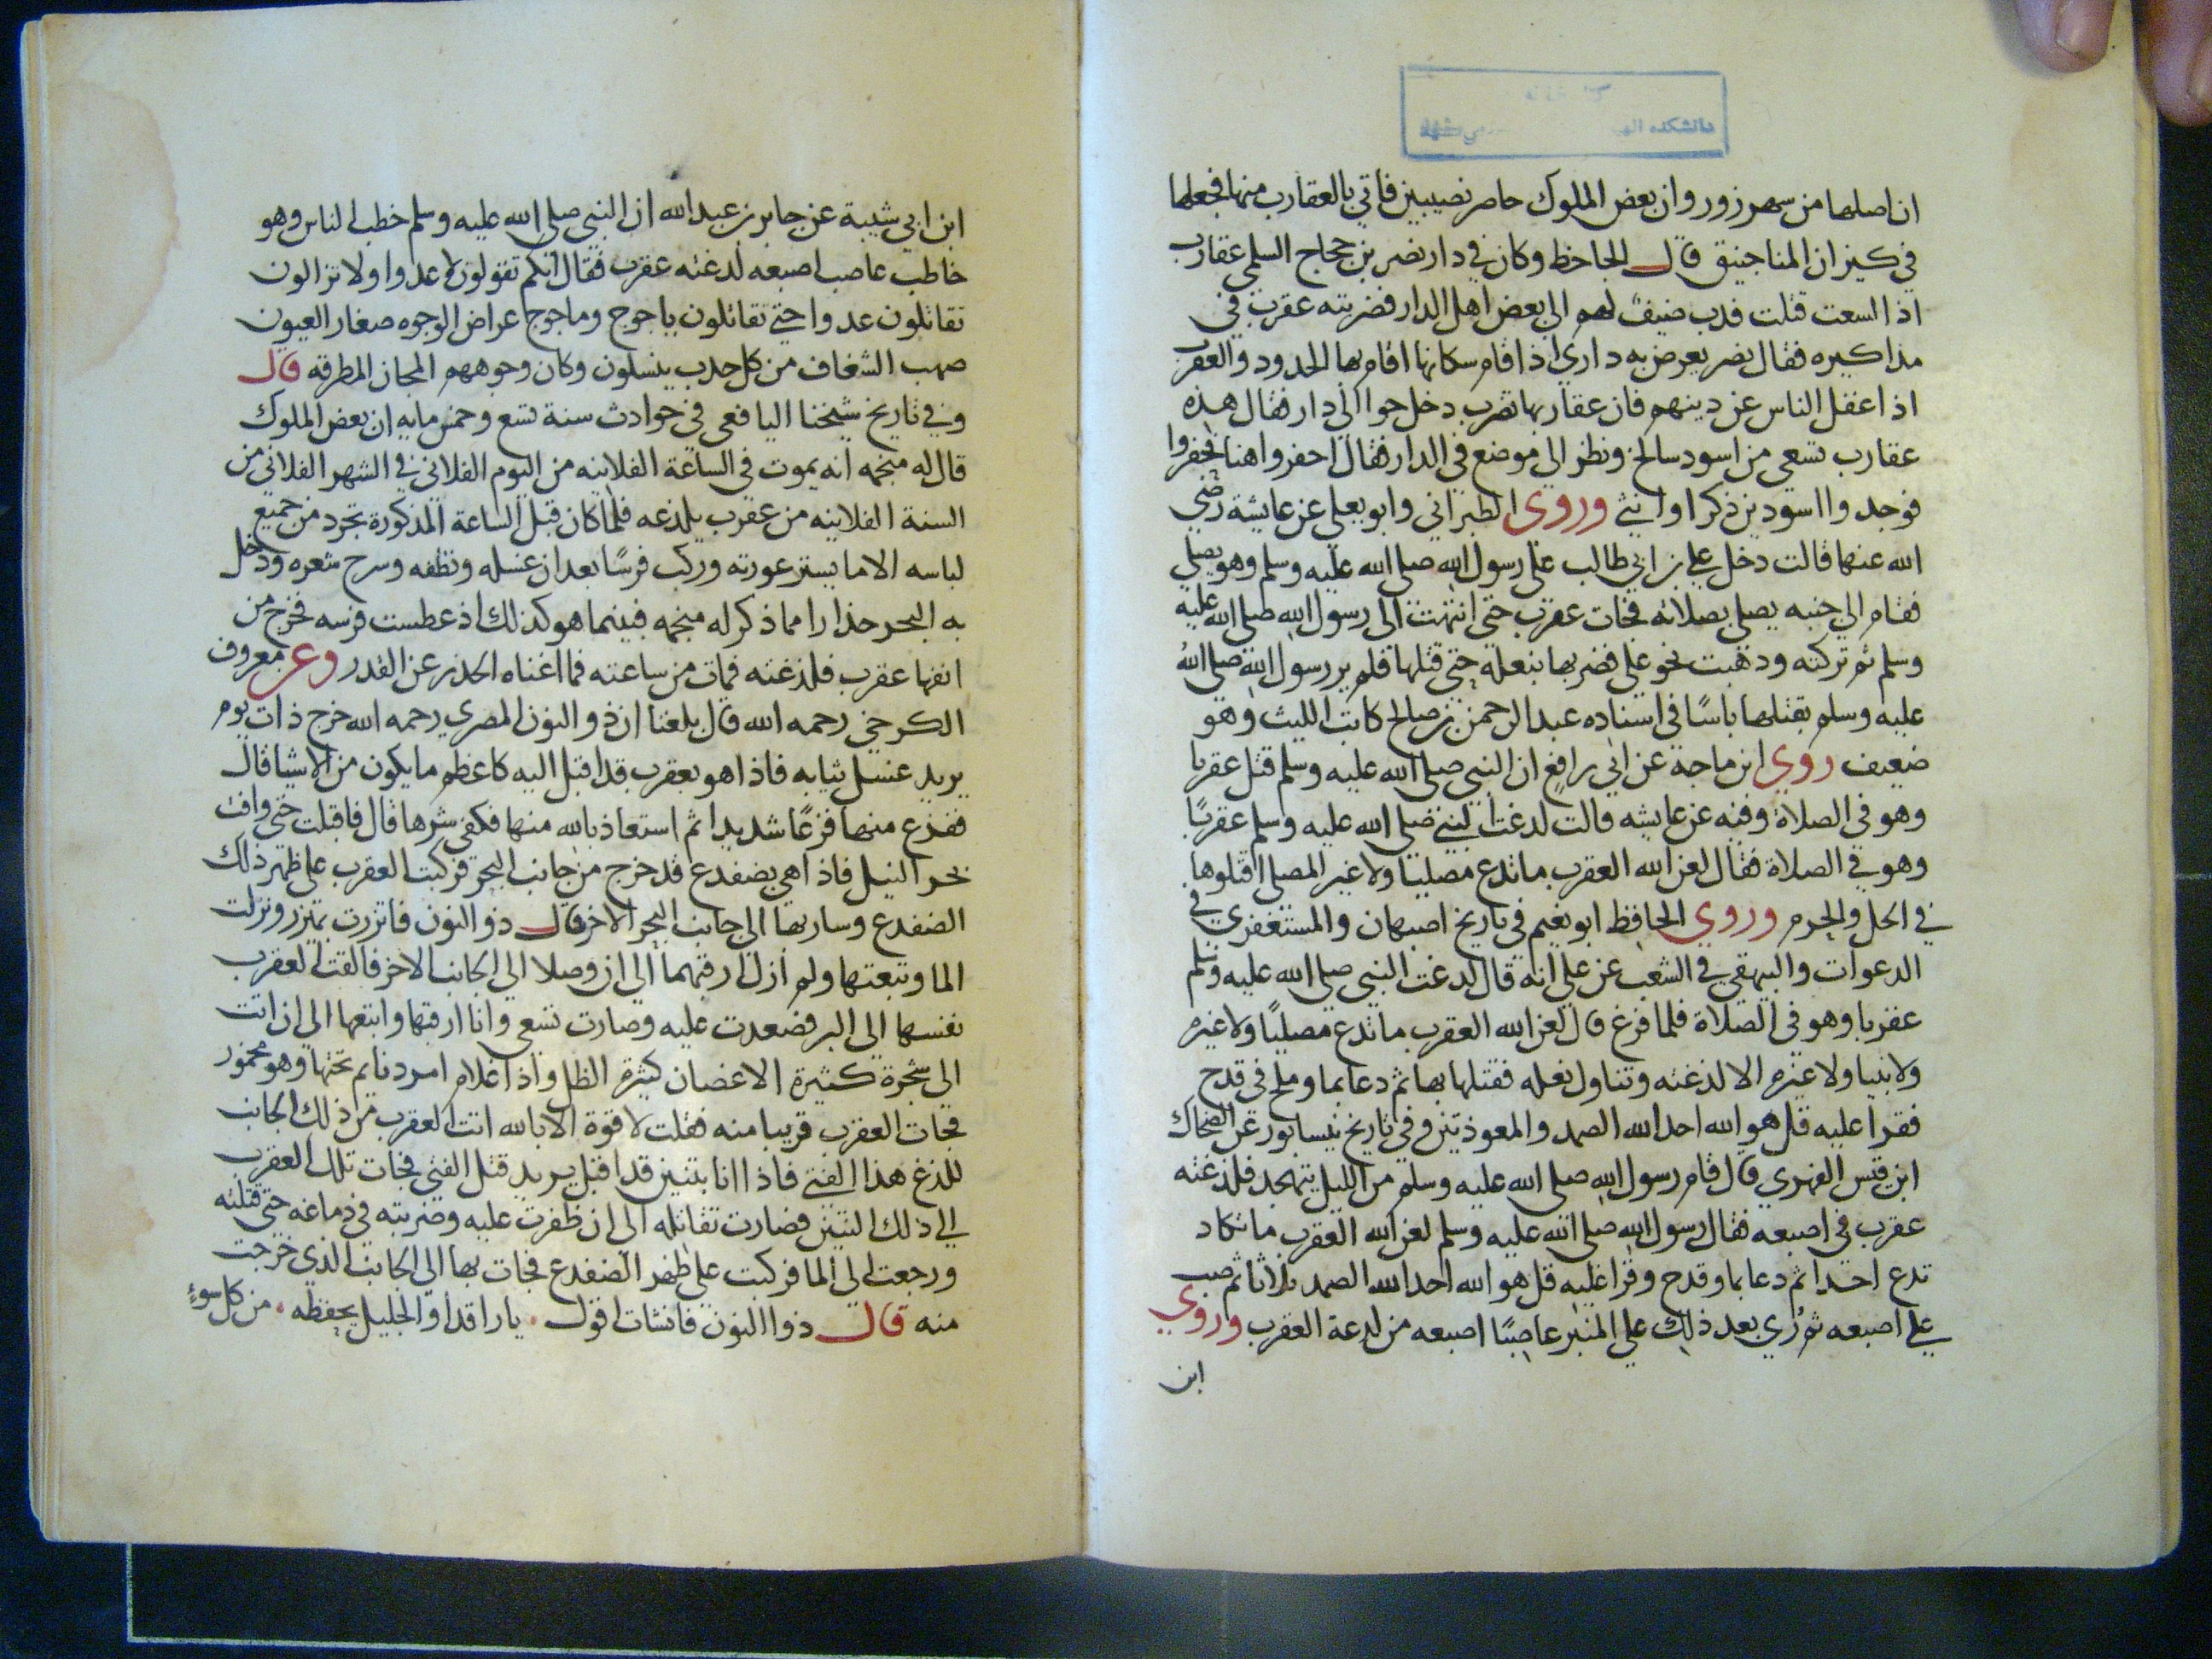 دانشكده الهيات
ان اصلها من سهرزور وان بعض الملوك حاصر نصيبين فاتي بالعقارب منها فجعلها
في كيزان المناجنيق قال الجاحظ وكان في دار نضر بن حجاج السلمي عقارب
اذا لسعت قتلت فدب ضيف لهم الي بعض اهل الدار فضربته عقرب في
مذاكيره فقال نضر يعرض به داري اذا قام سكانها اقام بها الحدود والعقرب
اذا غفل الناس عن دينهم فان عقاربها تضرب دخل حوا الي دار فقال هذه
عقارب تسعي من اسود سالخ ونظر الي موضع في الدار فقال احفروا هنا فحفروا
فوجدوا اسودين ذكرا وانثي وروي الطبراني وابو يعلي عن عايشة رضي
الله عنها قالت دخل علي بن ابي طالب علي رسول الله صلي الله عليه وسلم وهو يصلي
فقام الي جنبه يصلي بصلاته فجات عقرب حتي انتهت الي رسول الله صلي الله عليه
وسلم ثم تركته وذهبت نحو علي فضربها بنعله حتي قتلها فلم ير رسول الله صلي الله
عليه وسلم بقتلها باسًا في اسناده عبد الرحمن بن صالح كاتب الليث وهو
ضعيف روي ابن ماجة عن ابي رافع ان النبي صلي الله عليه وسلم قتل عقربا
وهو في الصلاة وفيه عن عايشه قالت لدغت النبي صلي الله عليه وسلم عقربًا
وهو في الصلاة فقال لعن الله العقرب ما تدع مصليا ولا غير المصلي اقتلوها
في الحل والحرم وروي الحافظ ابو نعيم في تاريخ اصبهان والمستغفري في
الدعوات والبيهقي في الشعب عن علي انه قال لدغت النبي صلي الله عليه وسلم
عقربا وهو في الصلاة فلما فرغ قال لعن الله العقرب ما تدع مصليًا ولا غيره
ولا نبيا ولا غيره الا لدغته وتناول نعله فقتلها بها ثم دعا بما وملح في قدح
فقرا عليه قل هو الله احد الله الصمد والمعوذتين وفي تاريخ نيسابور عن الضحاك
ابن قيس الفهري قال قام رسول الله صلي الله عليه وسلم من الليل يتهجد فلدغته
عقرب في اصبعه فقال رسول الله صلي الله عليه وسلم لعن الله العقرب ما تكاد
تدع احدا ثم دعا بما وقدح وقرا عليه قل هو الله احد الله الصمد ثلاثا ثم صب
علي اصبعه ثم رُي بعد ذلك علي المنبر عاصبًا اصبعه من لدغة العقرب وروي
ابن
ابن ابي شيبة عن جابر بن عبد الله ان النبي صلي الله عليه وسلم خطب الناس وهو
خاطب عاصب اصبعه لدغته عقرب فقال انكم تقولون لا عدوا ولا تزالون
تقاتلون عدوا حتي تقاتلون ياجوج وماجوج عراض الوجوه صغار العيون
صهب الشغاف من كل حدب ينسلون وكان وجوههم المجان المطرقه قال
وفي تاريخ شيخنا اليافعي في حوادث سنة تسع وخمس مايه ان بعض الملوك
قال له منجمه انه يموت في الساعة الفلانيه من اليوم الفلاني في الشهر الفلاني من
السنة الفلانيه من عقرب يلدغه فلما كان قبل الساعة المذكورة تجرد من جميع
لباسه الا ما يستر عورته وركب فرسًا بعد ان غسله ونظفه وسرح شعره ودخل
به البحر حذارا مما ذكر له منجمه فبينما هو كذلك اذ عطست فرسه فخرج من
انفها عقرب فلدغته فمات من ساعته فما اغناه الحذر عن القدر وعن معروف
الكرخي رحمه الله قال بلغنا ان ذو النون المصري رحمه الله خرج ذات يوم
يريد غسل ثيابه فاذا هو بعقرب قد اقبل اليه كاعظم ما يكون من الاشيا قال
ففزع منها فزعًا شديدا ثم استعاذ بالله منها فكفي شرها قال فاقبلت حتي وافت
بحر النيل فاذا هي بضفدع قد خرج من جانب البحر فركبت العقرب علي ظهر ذلك
الضفدع وسار بها الي جانب البحر الاخر قال ذو النون فاتزرت بميزر ونزلت
الما وتبعتها ولم ازل ارقبهما الي ان وصلا الي الجانب الاخر فالقت العقرب
نفسها الي البر فصعدت عليه وصارت تسعي وانا ارقبها واتبعها الي ان اتت
الي شجرة كثيرة الاغصان كثيرة الظل واذا غلام امرد نايم تحتها وهو مخمور
فجات العقرب قريبا منه فقلت لا قوة الا بالله اتت العقرب من ذلك الجانب
للدغ هذا الفتي فاذا انا بتنين قد اقبل يريد قتل الفتي فجات تلك العقرب
الي ذلك التنين فصارت تقاتله الي ان ظفرت عليه وضربته في دماغه حتي قتلته
ورجعت الي الما فركبت علي ظهر الضفدع فجات بها الي الجانب الذي خرجت
منه قال ذوا النون فانشات اقول . يا راقدا والجليل يحفظه . من كل سوءٍ